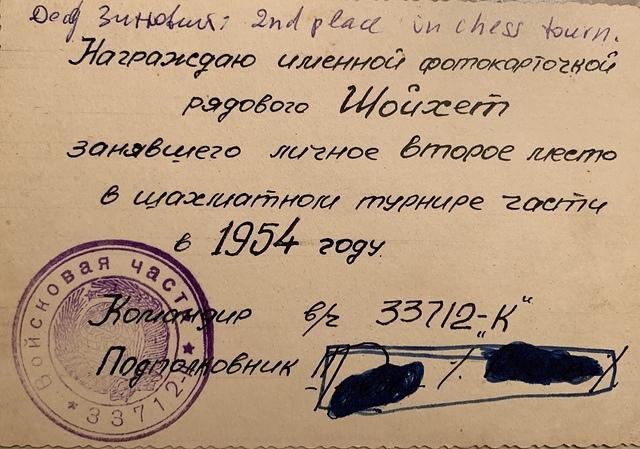 Дед Зиновий: 2nd place in chess tourn.
Награждаю именной фотокарточкой
рядового Шойхет
занявшего личное второе место
в шахматном турнире части
в 1954 году
Командир в/ч 33712-„К“
Подполковник
Войсковая часть
* 33712-